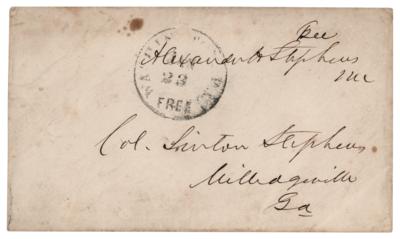 Free
Alexander H Stephens
MC
23
FREE
Col. Linton Stephens
Milledgeville
Ga